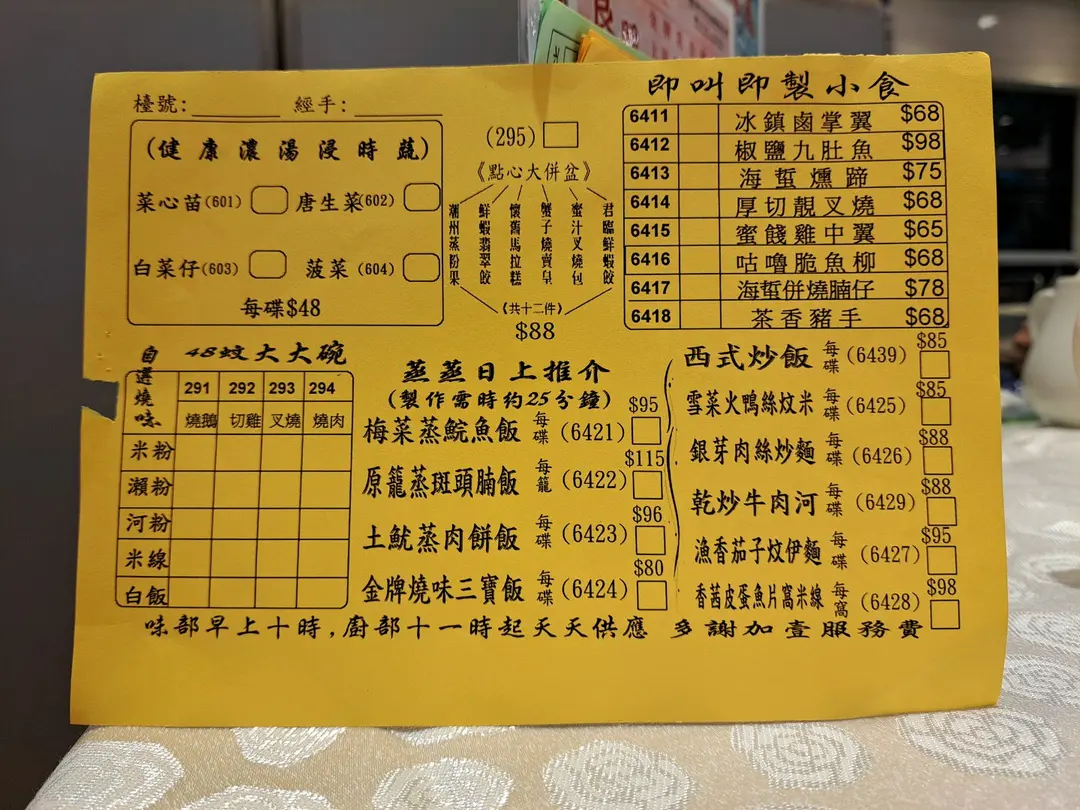 檯號:________ 經手:________
(健康濃湯浸時蔬)
菜心苗(601) 唐生菜(602)
白菜仔(603) 菠菜(604)
每碟$48
(295)
《點心大併盆》
潮州蒸粉果
鮮蝦翡翠餃
懷舊馬拉糕
蟹子燒賣皇
蜜汁叉燒包
君臨鮮蝦餃
(共十二件)
$88
即叫即製小食
6411 冰鎮鹵掌翼 $68
6412 椒鹽九肚魚 $98
6413 海蜇燻蹄 $75
6414 厚切靚叉燒 $68
6415 蜜餞雞中翼 $65
6416 咕嚕脆魚柳 $68
6417 海蜇併燒腩仔 $78
6418 茶香豬手 $68
48蚊大大碗
自選燒味
291 292 293 294
燒鵝 切雞 叉燒 燒肉
米粉
瀨粉
河粉
米線
白飯
蒸蒸日上推介
(製作需時約25分鐘)
梅菜蒸鯇魚飯 每碟 (6421) $95
原籠蒸斑頭腩飯 每籠 (6422) $115
土魷蒸肉餅飯 每碟 (6423) $96
金牌燒味三寶飯 每碟 (6424) $80
西式炒飯 每碟 (6439) $85
雪菜火鴨絲炆米 每碟 (6425) $85
銀芽肉絲炒麵 每碟 (6426) $88
乾炒牛肉河 每碟 (6429) $88
漁香茄子炆伊麵 每碟 (6427) $95
香茜皮蛋魚片窩米線 每窩 (6428) $98
味部早上十時,廚部十一時起天天供應 多謝加壹服務費